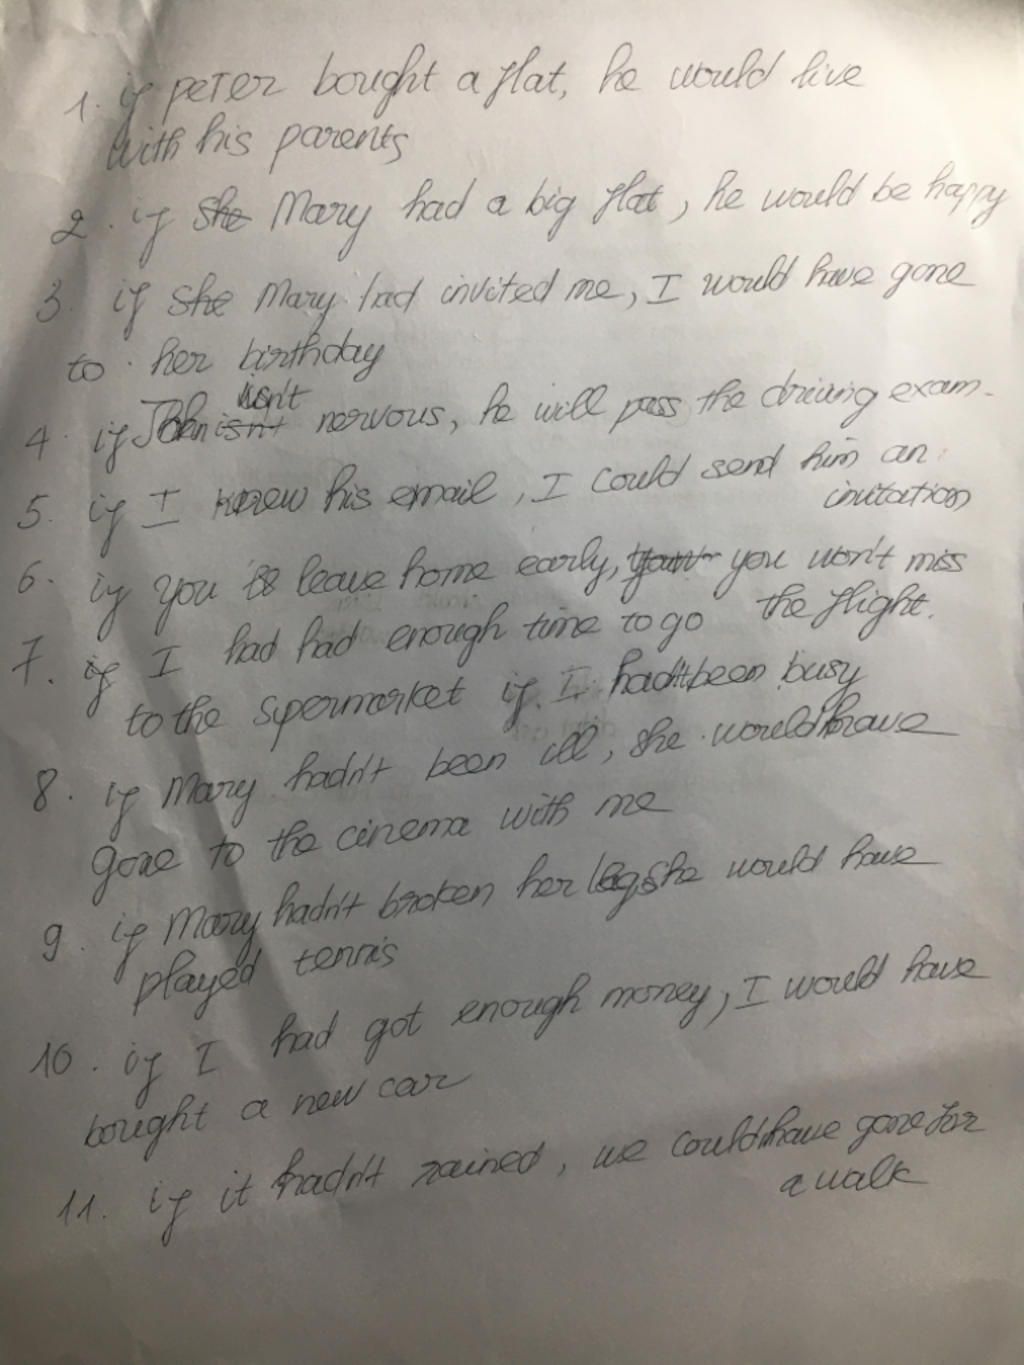 1. if peter bought a flat, he would live
with his parents
2. if she Mary had a big flat, he would be happy
3. if she Mary had invited me, I would have gone
to her birthday
isn't
4. if John isn't nervous, he will pass the driving exam.
5. if I knew his email, I could send him an
invitation
6. if you leave home early, you won't miss
the flight.
7. if I had had enough time to go
to the spermarket if I hadn't been busy
8. if Mary hadn't been ill, she would have
gone to the cinema with me
9. if Mary hadn't broken her leg she would have
played tennis
10. if I had got enough money, I would have
bought a new car
11. if it hadn't rained, we could have gone for
a walk